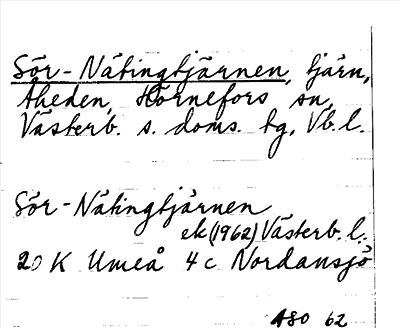 Sör-Nätingtjärnen, tjärn,
Åheden, Hörnefors sn,
Västerb. s. doms. tg, Vb. l.
Sör-Nätingtjärnen
ek (1962) Västerb. l.
20 K Umeå 4c Nordansjö
ASO 62